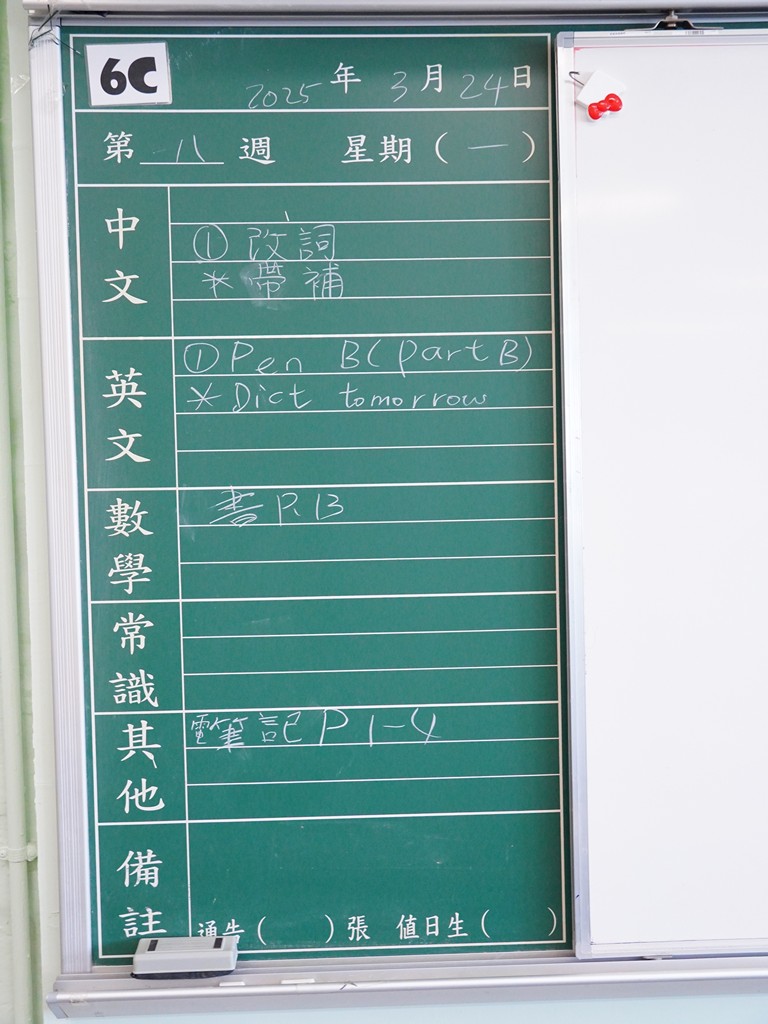 6C
2025年3月24日
第一八週 星期(一)
中文
① 改詞
* 帶補
英文
① Pen B(part B)
* Dict tomorrow
數學
書 P.13
常識
其他
電筆記 P 1-4
備註
通告( )張 值日生( )